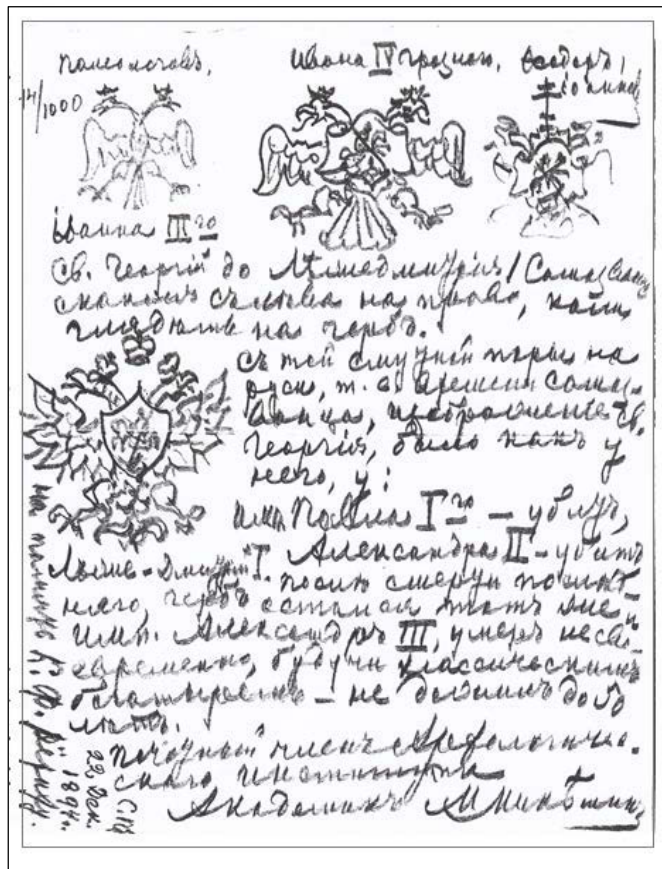 Палеологовъ,
Ивана IV грознаго,
Ѳеодоръ I
14/1000
Іоанна III го
Св. Георгій до Лжедмитрія I Самозванца
скакалъ съ лѣва на право,
глядѣть на гербъ.
съ той смутной поры на
руси, т. е. времени Само-
званца, изображеніе св.
Георгія, было какъ у
него, у:
Имп. Павла I го — убитъ,
Александра II — убитъ
Лже-Дмитрій I.
послѣ смерти послѣд-
няго, гербъ остался тотъ же и
Имп. Александръ III, умеръ несво-
евременно, будучи классическимъ
богатыремъ — не доживъ до 50
лѣтъ.
почетный членъ Археологиче-
скаго института
Академикъ
на память К. Ф.
22, Дек. 1894 г.
СПб